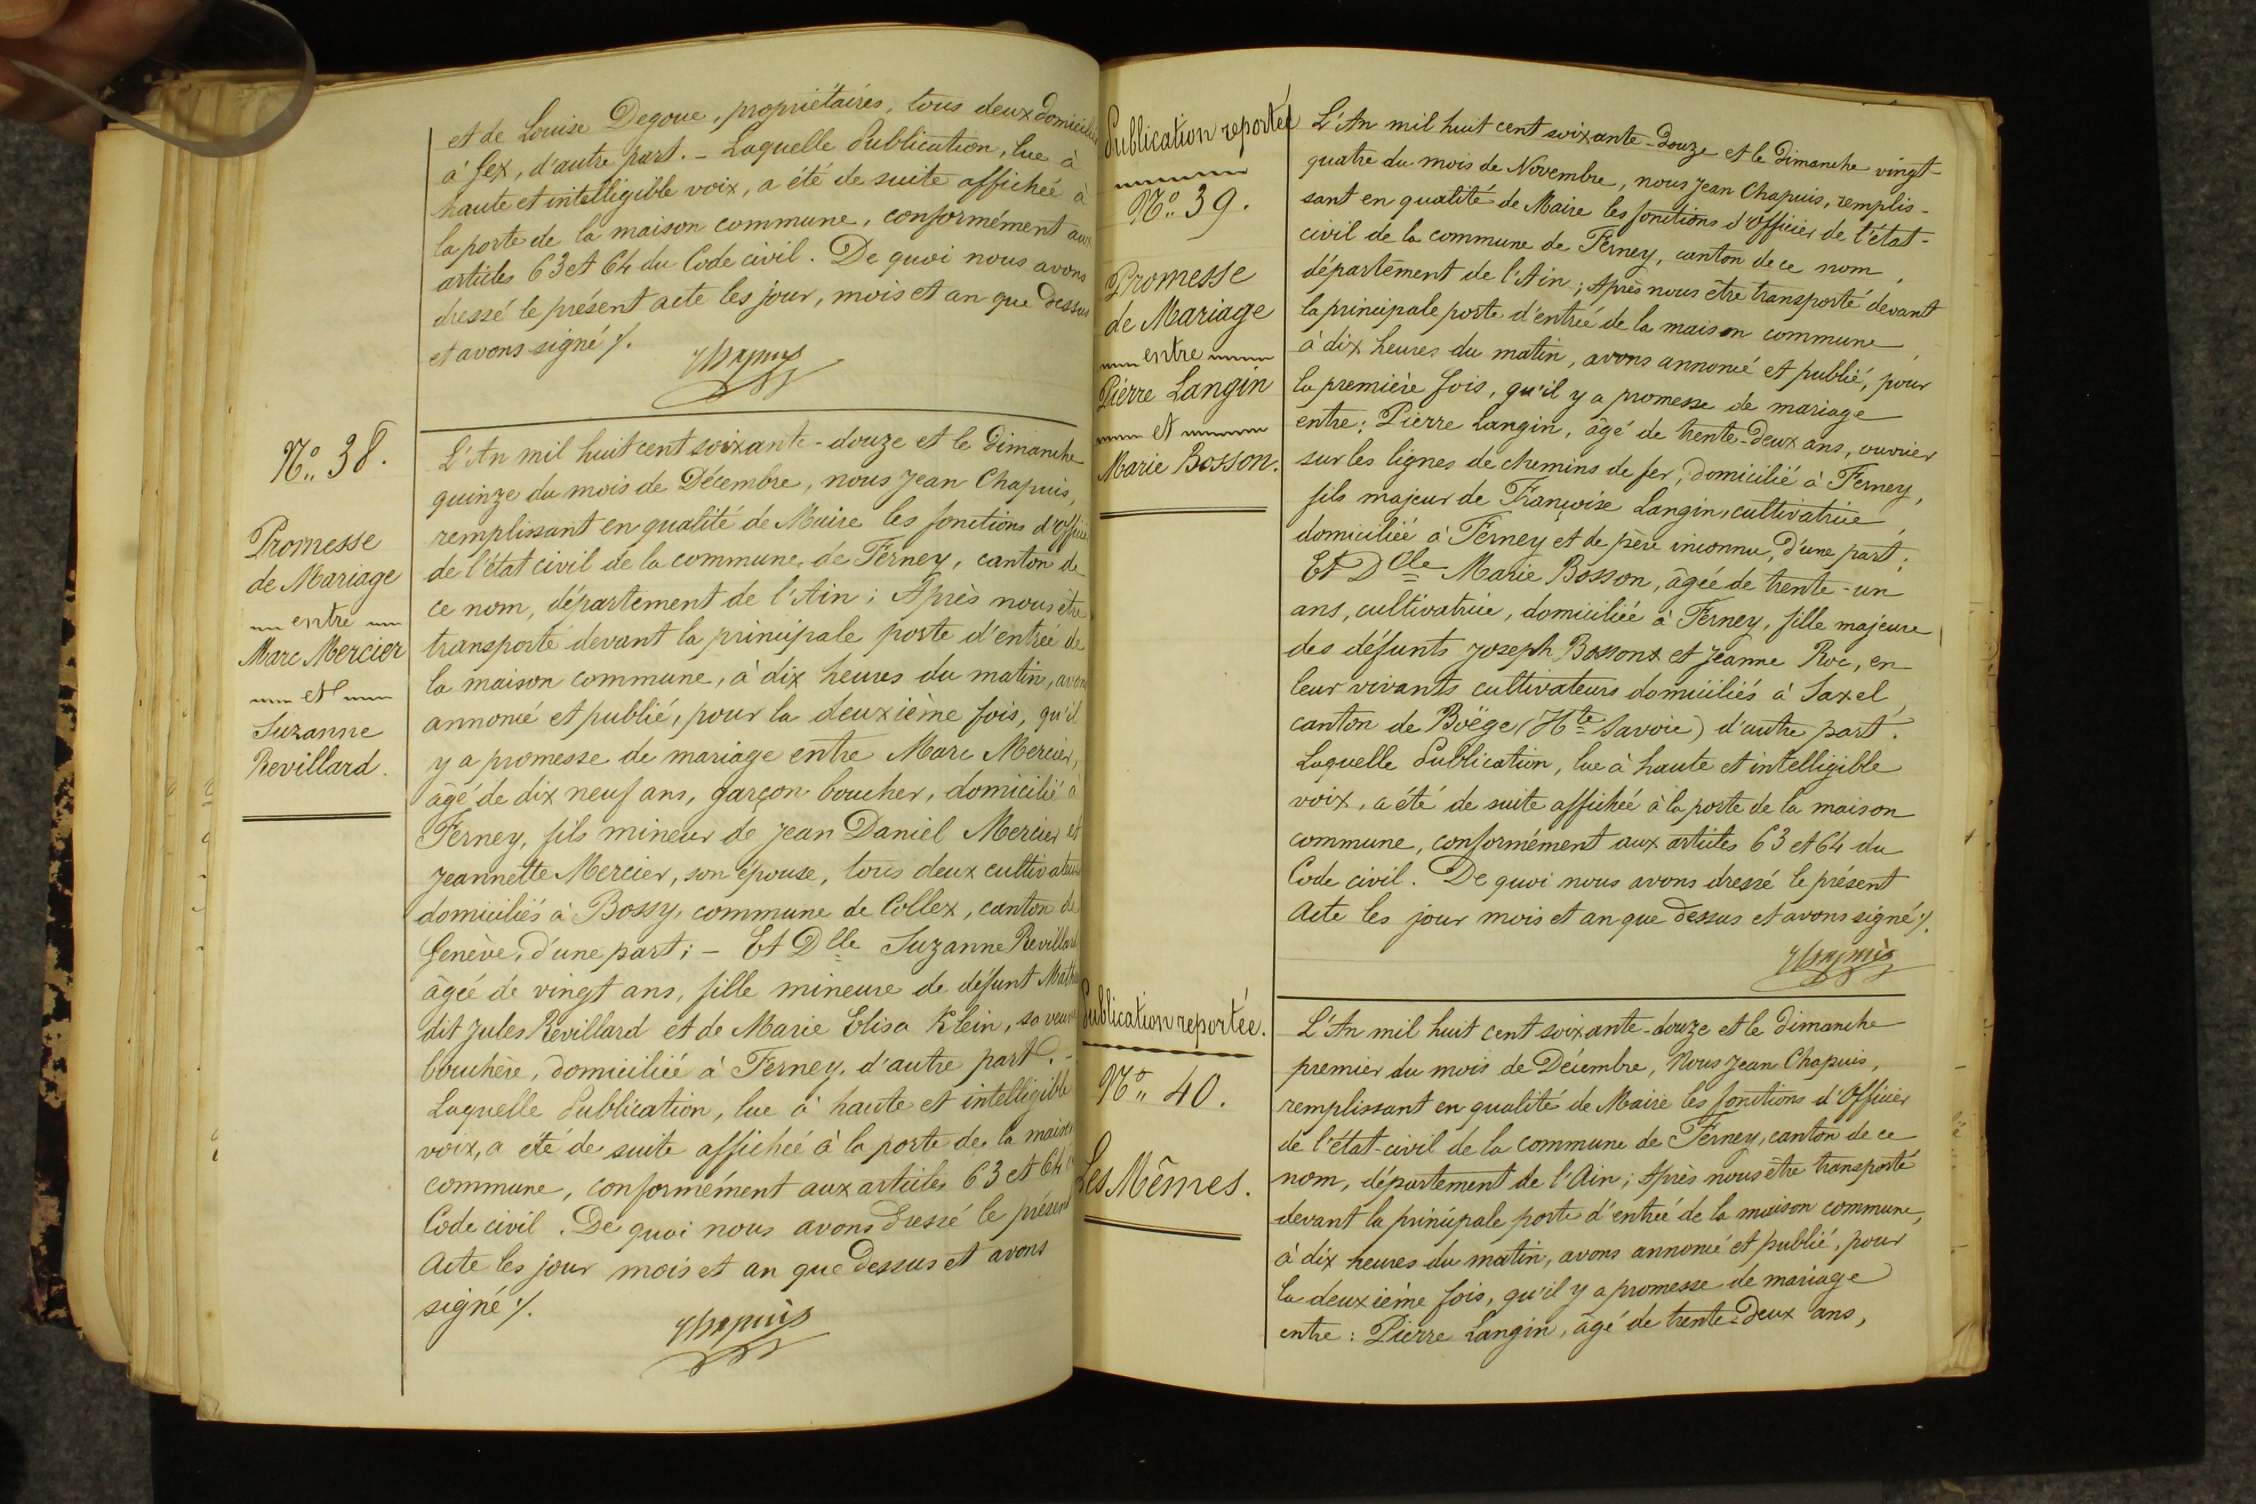 et de Louise Degoue, propriétaires, tous deux domiciliés
à Gex, d'autre part. - Laquelle Publication, lue à
haute et intelligible voix, a été de suite affichée à
la porte de la maison commune, conformément aux
articles 63 et 64 du Code civil. De quoi nous avons
dressé le présent acte les jour, mois et an que dessus
et avons signé ./.
Chapuis
No. 38.
Promesse
de Mariage
entre
Marc Mercier
et
Suzanne
Revillard.
L'An mil huit cent soixante-douze et le Dimanche
quinze du mois de Décembre, nous Jean Chapuis,
remplissant en qualité de Maire les fonctions d'Officier
de l'état civil de la commune de Ferney, canton de
ce nom, département de l'Ain; Après nous être
transporté devant la principale porte d'entrée de
la maison commune, à dix heures du matin, avons
annoncé et publié, pour la deuxième fois, qu'il
y a promesse de mariage entre Marc Mercier,
âgé de dix neuf ans, garçon boucher, domicilié à
Ferney, fils mineur de Jean Daniel Mercier et
Jeannette Mercier, son épouse, tous deux cultivateurs
domiciliés à Bossy, commune de Collex, canton de
Genève, d'une part; - Et Dlle Suzanne Revillard
âgée de vingt ans, fille mineure de défunt
dit Jules Revillard et de Marie Elisa Klein, sa veuve
bouchère, domiciliée à Ferney, d'autre part. -
Laquelle Publication, lue à haute et intelligible
voix, a été de suite affichée à la porte de la maison
commune, conformément aux articles 63 et 64
Code civil. De quoi nous avons dressé le présent
Acte les jour mois et an que dessus et avons
signé ./.
Chapuis
Publication reportée
No. 39.
Promesse
de Mariage
entre
Pierre Langin
et
Marie Bosson.
L'An mil huit cent soixante-douze et le Dimanche vingt-
quatre du mois de Novembre, nous Jean Chapuis, remplis-
sant en qualité de Maire les fonctions d'Officier de l'état-
civil de la commune de Ferney, canton de ce nom,
département de l'Ain; Après nous être transporté devant
la principale porte d'entrée de la maison commune,
à dix heures du matin, avons annoncé et publié, pour
la première fois, qu'il y a promesse de mariage
entre: Pierre Langin, âgé de trente-deux ans, ouvrier
sur les lignes de chemins de fer, domicilié à Ferney,
fils majeur de Françoise Langin, cultivatrice,
domiciliée à Ferney et de père inconnu, d'une part;
Et Dlle Marie Bosson, âgée de trente-un
ans, cultivatrice, domiciliée à Ferney, fille majeure
des défunts Joseph Bosson et Jeanne Roc, en
leur vivants cultivateurs domiciliés à Saxel,
canton de Boëge (Hte Savoie) d'autre part.
Laquelle Publication, lue à haute et intelligible
voix, a été de suite affichée à la porte de la maison
commune, conformément aux articles 63 et 64 du
Code civil. De quoi nous avons dressé le présent
Acte les jour mois et an que dessus et avons signé ./.
Chapuis
Publication reportée.
No. 40.
Les Mêmes.
L'An mil huit cent soixante-douze et le dimanche
premier du mois de Décembre, Nous Jean Chapuis,
remplissant en qualité de Maire les fonctions d'Officier
de l'état-civil de la commune de Ferney, canton de ce
nom, département de l'Ain; Après nous être transporté
devant la principale porte d'entrée de la maison commune,
à dix heures du matin, avons annoncé et publié, pour
la deuxième fois, qu'il y a promesse de mariage
entre: Pierre Langin, âgé de trente-deux ans,